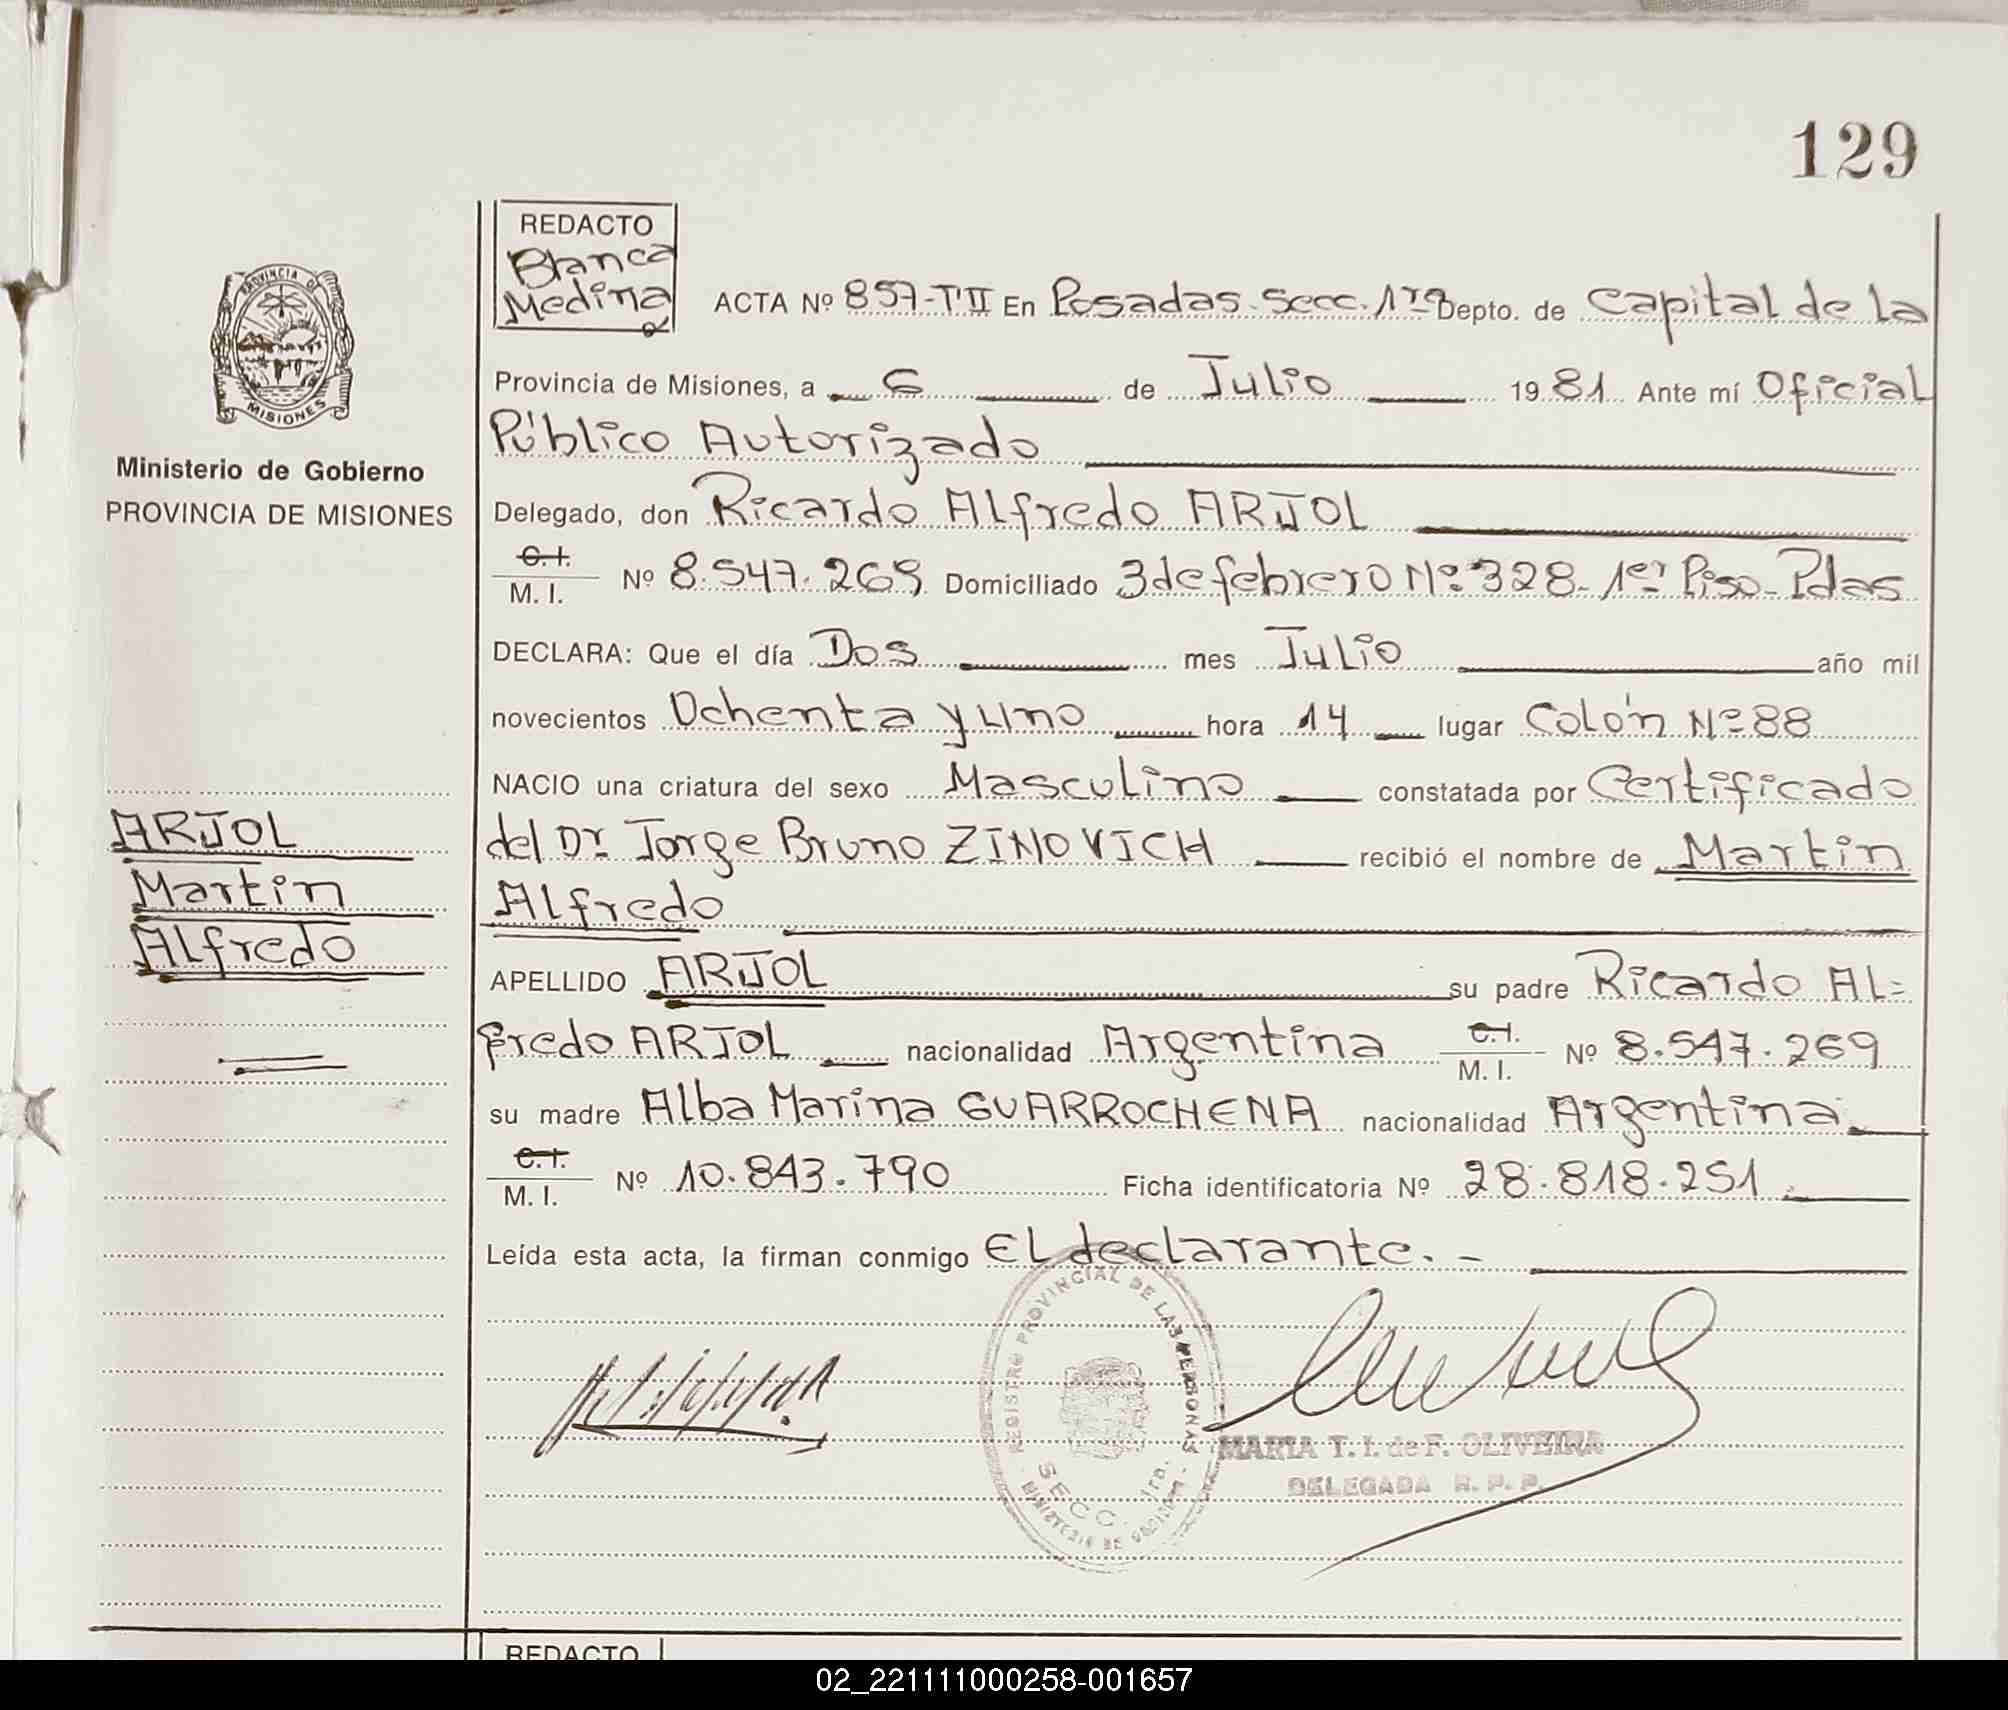 129
REDACTO
Blanca
Medina
ACTA Nº 857-TºII En Posadas. Secc. 1rª Depto. de Capital de la
PROVINCIA DE
MISIONES
Provincia de Misiones, a 6 de Julio 1981 Ante mí Oficial
Público Autorizado
Ministerio de Gobierno
PROVINCIA DE MISIONES
Delegado, don Ricardo Alfredo ARJOL
C.I.
M. I. Nº 8.547.269 Domiciliado 3 de febrero Nº 328- 1er Piso- Pdas
DECLARA: Que el día Dos mes Julio año mil
novecientos Ochenta y Uno hora 14 lugar Colón Nº 88
NACIO una criatura del sexo Masculino constatada por Certificado
del Dr. Jorge Bruno ZINOVICH recibió el nombre de Martin
Alfredo
ARJOL
Martin
Alfredo
APELLIDO ARJOL su padre Ricardo Al=
fredo ARJOL nacionalidad Argentina C.I.
M. I. Nº 8.547.269
su madre Alba Marina GUARROCHENA nacionalidad Argentina.
C.I.
M. I. Nº 10.843.790 Ficha identificatoria Nº 28.818.251.
Leída esta acta, la firman conmigo El declarante.-
REGISTRO PROVINCIAL DE LAS PERSONAS
SECC. 1ra.
MINISTERIO DE GOBIERNO
MARIA T. I. de F. OLIVEIRA
DELEGADA R. P. P.
REDACTO
02_221111000258-001657